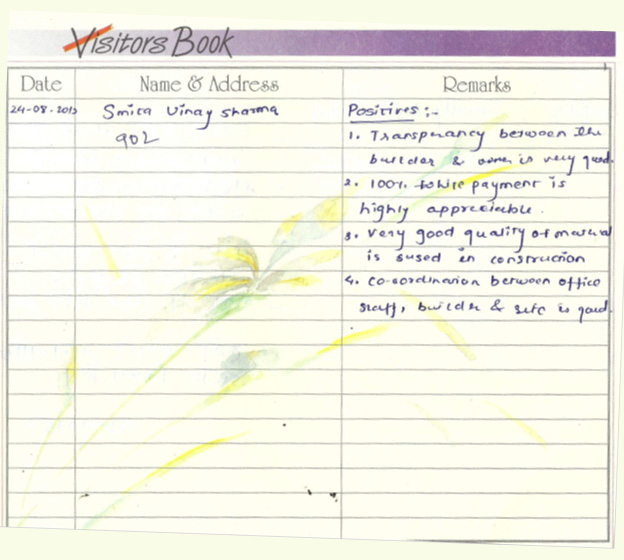 Visitors Book
Date Name & Address Remarks
24-08-2013 Smita Vinay Sharma Positives :-
902 1. Transperancy between the
builder & owner is very good.
2. 100% white payment is
highly appreciable.
3. Very good quality of material
is sused in construction
4. Co-oordination between office
staff, builder & site is good.